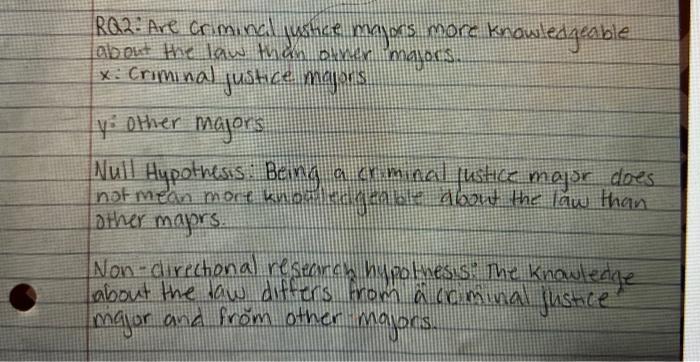 RQ2: Are criminal justice majors more knowledgeable
about the law than other majors.
x: Criminal justice majors
y: other majors
Null Hypothesis: Being a criminal justice major does
not mean more knowledgeable about the law than
other majors.
Non-directional research hypothesis: The knowledge
about the law differs from a criminal justice
major and from other majors.